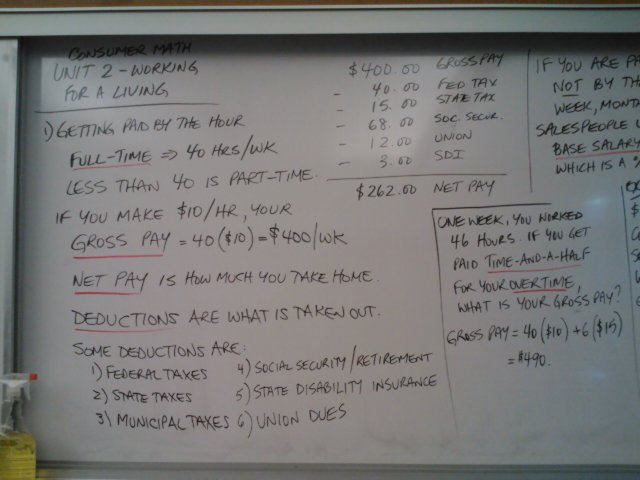 CONSUMER MATH
UNIT 2 - WORKING
FOR A LIVING
1) GETTING PAID BY THE HOUR
FULL-TIME ⇒ 40 HRS/WK
LESS THAN 40 IS PART-TIME.
IF YOU MAKE $10/HR, YOUR
GROSS PAY = 40($10) = $400/WK
NET PAY IS HOW MUCH YOU TAKE HOME.
DEDUCTIONS ARE WHAT IS TAKEN OUT.
SOME DEDUCTIONS ARE:
1) FEDERAL TAXES
2) STATE TAXES
3) MUNICIPAL TAXES
4) SOCIAL SECURITY/RETIREMENT
5) STATE DISABILITY INSURANCE
6) UNION DUES
$400.00 GROSS PAY
- 40.00 FED TAX
- 15.00 STATE TAX
- 68.00 SOC. SECUR.
- 12.00 UNION
- 3.00 SDI
$262.00 NET PAY
IF YOU ARE PA
NOT BY TH
WEEK, MONT
SALESPEOPLE
BASE SALARY
WHICH IS A %
ONE WEEK, YOU WORKED
46 HOURS. IF YOU GET
PAID TIME-AND-A-HALF
FOR YOUR OVERTIME,
WHAT IS YOUR GROSS PAY?
GROSS PAY = 40($10) + 6($15)
= $490.